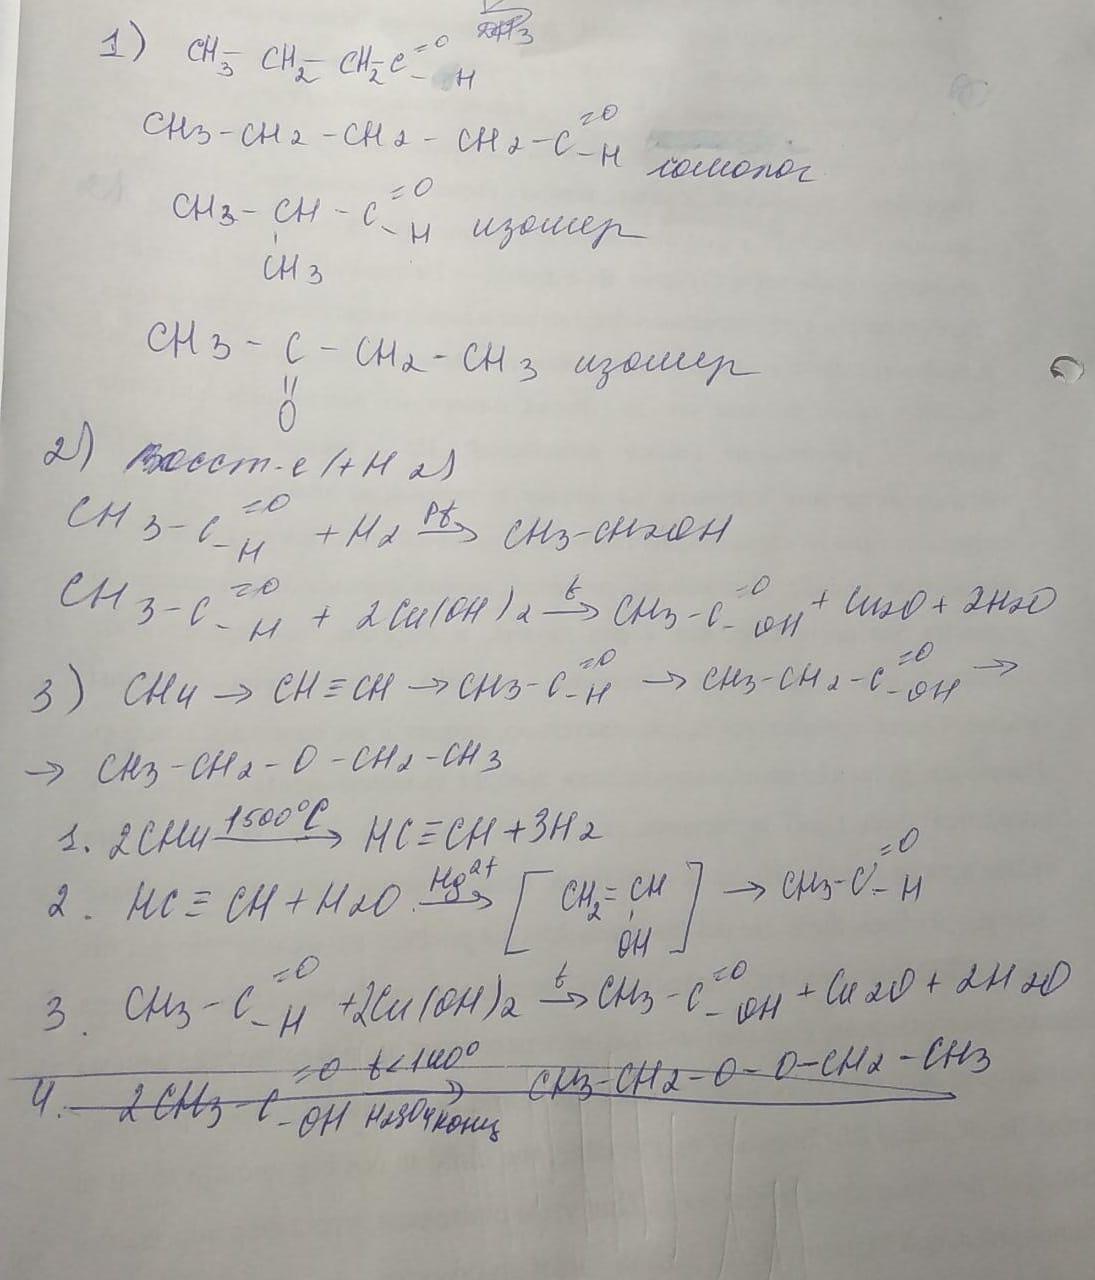 1) CH3-CH2-CH2-C=O-H
CH3-CH2-CH2-CH2-C=O-H гомолог
CH3-CH-C=O-H изомер
CH3
CH3-C-CH2-CH3 изомер
=
O
2) Восст-е (+H2)
CH3-C=O-H + H2 Pt→ CH3-CH2OH
CH3-C=O-H + 2Cu(OH)2 t→ CH3-C=O-OH + Cu2O + 2H2O
3) CH4 → CH≡CH → CH3-C=O-H → CH3-CH2-C=O-OH →
→ CH3-CH2-O-CH2-CH3
1. 2CH4 1500°C→ HC≡CH + 3H2
2. HC≡CH + H2O Hg2+→ [CH2=CH-OH] → CH3-C=O-H
3. CH3-C=O-H + 2Cu(OH)2 t→ CH3-C=O-OH + Cu2O + 2H2O
4. 2CH3-C=O-OH t<140° H2SO4конц→ CH3-CH2-O-O-CH2-CH3